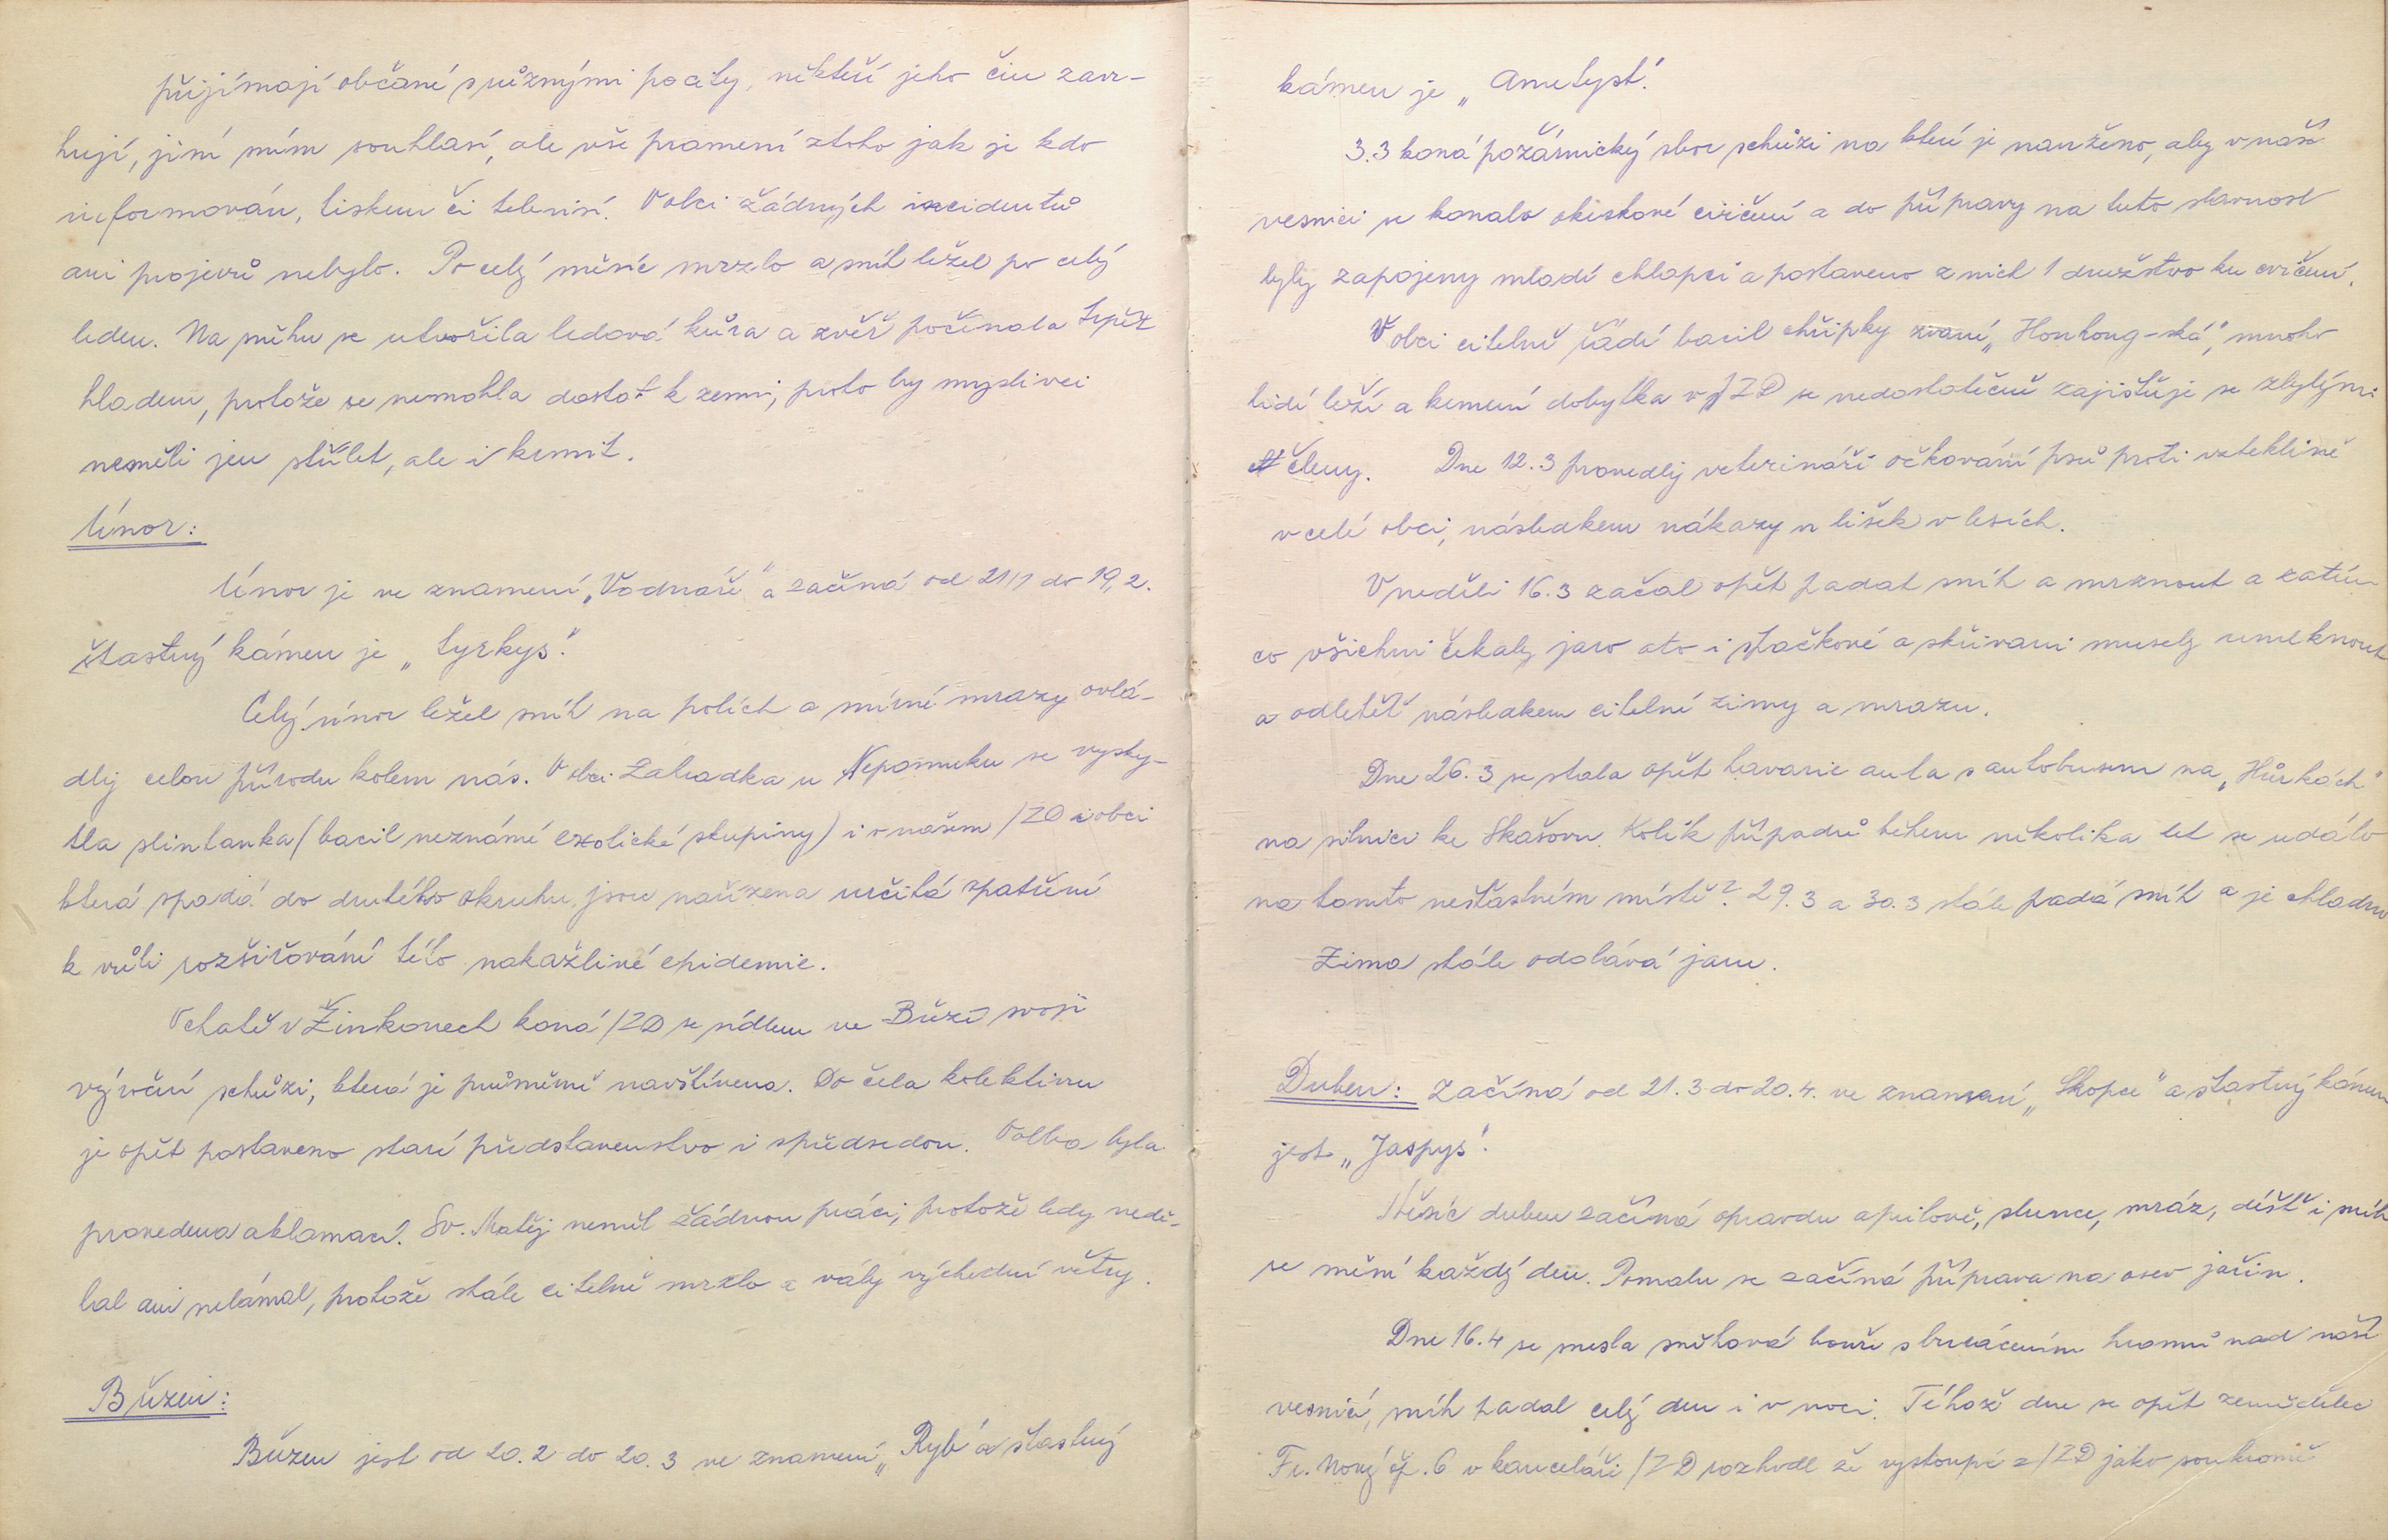 přijímají občané s různými pocity, někteří jeho čin zavr-
hují, jiní s ním souhlasí, ale vše pramení z toho jak je kdo
informován, tiskem či televisí. V obci žádných incidentů
ani projevů nebylo. Po celý měsíc mrzlo a sníh ležel po celý
leden. Na sněhu se utvořila ledová kůra a zvěř počínala trpět
hladem, protože se nemohla dostat k zemi, proto by myslivci
neměli jen střílet, ale i krmit.
Únor:
Únor je ve znamení „Vodnáře" a začíná od 21/1 do 19,2.
štastný kámen je „tyrkys".
Celý únor ležel sníh na polích a mírné mrazy ovlá-
dly celou přírodu kolem nás. V obci Zahradka u Nepomuku se vysky-
tla slintavka (bacil neznámé exotické skupiny) i v našem JZD i obci
která spadá do druhého okruhu, jsou nařízena určitá opatření
k vůli rozšiřování této nakažlivé epidemie.
V chatě v Žinkovech koná JZD se sídlem ve Březí svoji
výroční schůzi, která je průměrně navštívena. Do čela kolektivu
je opět postaveno staré představenstvo i s předsedou. Volba byla
provedena aklamací. Sv. Matěj neměl žádnou práci, protože ledy nedě-
lal ani nelámal, protože stále citelně mrzlo a vály východní větry.
Březen:
Březen jest od 20.2 do 20.3 ve znamení „Ryb" a štastný
kámen je „Ametyst".
3.3 koná požárnický sbor schůzi na které je navrženo, aby v naší
vesnici se konalo okrskové cvičení a do přípravy na tuto slavnost
byly zapojeny mladí chlapci a postaveno z nich 1 družstvo ku cvičení.
V obci citelně řádí bacil chřipky zvané „Honkong-ská", mnoho
lidí leží a krmení dobytka v JZD se nedostatečně zajišťuje se zbylými
členy. Dne 12.3 provedly veterináři očkování psů proti vzteklině
v celé obci, následkem nákazy u lišek v lesích.
V neděli 16.3 začal opět padat sníh a mrznout a zatím
co všichni čekaly jaro ato i ptačkové a skřivani musely umlknout
a odletěti následkem citelné zimy a mrazu.
Dne 26.3 se stala opět havarie auta s autobusem na „Hůrkách"
na silnici ke Skašovu. Kolik případů během několika let se událo
na tomto nešťastném místě? 29.3 a 30.3 stále padá sníh a je chladno
Zima stále odolává jaru.
Duben: Začíná od 21.3 do 20.4. ve znamení „Skopce" a štastný kámen
jest „Jaspys".
Měsíc duben začíná opravdu aprílově, slunce, mráz, déšť i sníh
se mění každý den. Pomalu se začíná příprava na osev jařin.
Dne 16.4 se snesla sněhová bouře s burácením hromů nad naší
vesnicí, sníh padal celý den i v noci. Téhož dne se opět zemědělec
Fr. Nový čp. 6 v kanceláři JZD rozhodl že vystoupí z JZD jako soukromě